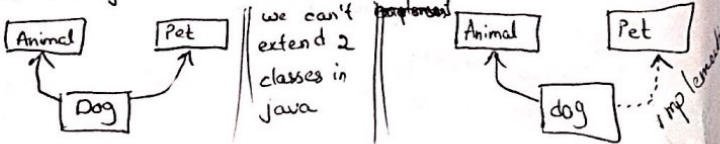 Animal
Pet
Dog
we can't
extend 2
classes in
java
Animal
Pet
dog